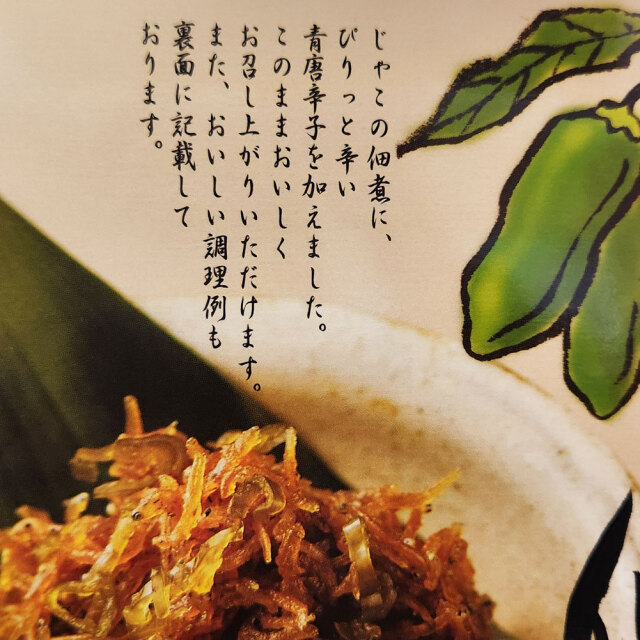 じゃこの佃煮に、
ぴりっと辛い
青唐辛子を加えました。
このままおいしく
お召し上がりいただけます。
また、おいしい調理例も
裏面に記載して
おります。